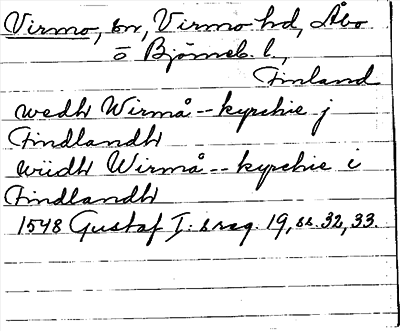 Virmo, sn, Virmo hd, Åbo
o Björneb. l.,
Finland
wedh Wirmå -- kyrchie j
Findlandh
wiidh Wirmå -- kyrchie i
Findlandh
1548 Gustaf I:s reg. 19, ss. 32, 33.